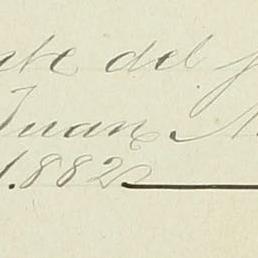 te del
Juan
1.882